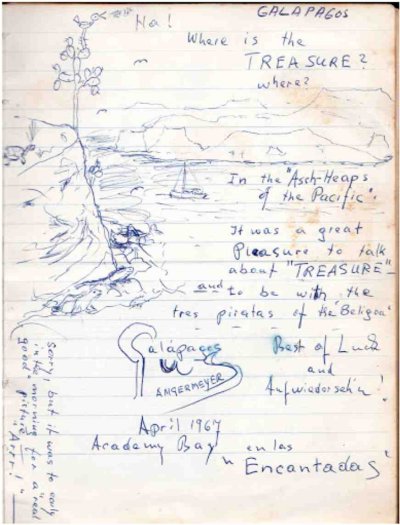 GALAPAGOS
Ha!
Where is the
TREASURE?
where?
In the "Asch-Heaps
of the Pacific":
It was a great
Pleasure to talk
about "TREASURE"-
and to be with the
tres piratas of the "Beligea"
Galápagos
Gus
ANGERMEYER
Best of Luck
and
Aufwiedersehn!
April 1967
Academy Bay
en las
"Encantadas"
Sorry, but it was to early
in the morning for a "real
good" picture
"Arr!"